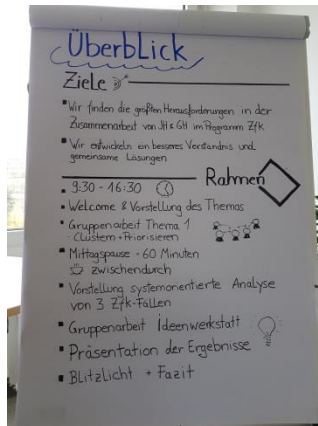 Überblick
Ziele
Wir finden die größten Herausforderungen in der
Zusammenarbeit von JH & GH im Programm ZfK
Wir entwickeln ein besseres Verständnis und
gemeinsame Lösungen
Rahmen
9:30 - 16:30
Welcome & Vorstellung des Themas
Gruppenarbeit Thema 1
Clustern + Priorisieren
Mittagspause - 60 Minuten
zwischendurch
Vorstellung systemorientierte Analyse
von 3 ZfK-Fällen
Gruppenarbeit Ideenwerkstatt
Präsentation der Ergebnisse
Blitzlicht + Fazit